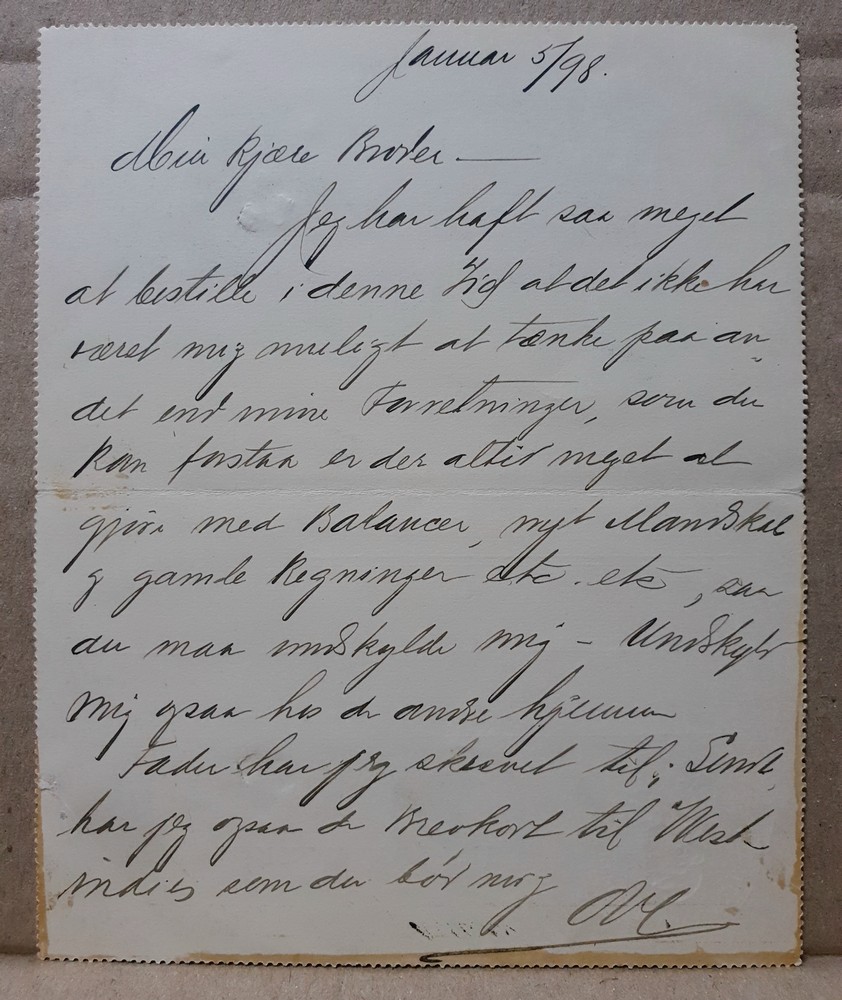 Januar 5/98.
Min Kjære Broder. —
Jeg har haft saa meget
at bestille i denne Tid at det ikke har
været mig muligt at tænke paa an„
det end mine Forretninger, som du
kan forstaa er der altid meget at
gjøre med Balancer, nyt Mandskab
og gamle Regninger etc. etc, saa
du maa undskylde mig – Undskyld
mig ogsaa hos de andre hjemme
Fader har jeg skrevet til; Sendt
har jeg ogsaa de Brevkort til West
indies som du bød mig